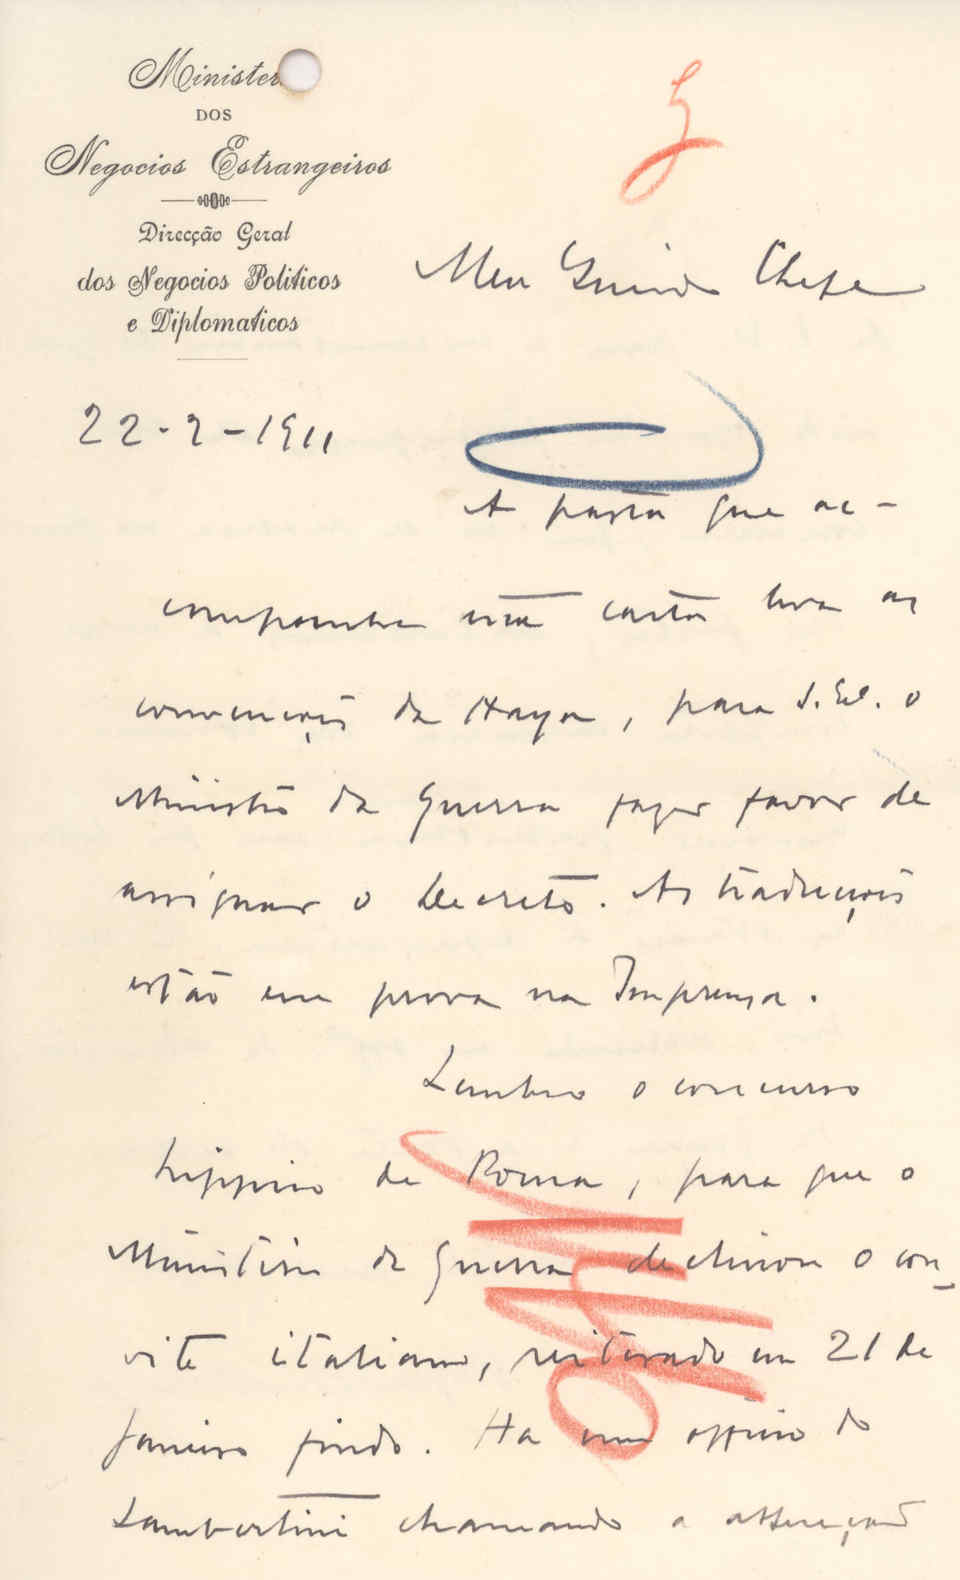 Ministerio
DOS
Negocios Estrangeiros
Direcção Geral
dos Negocios Politicos
e Diplomaticos
22-2-1911
Meu Querido Chefe
A pasta que ac-
companha esta carta leva as
convenções da Haya, para S. Ex. o
Ministro da Guerra fazer favor de
assignar o decreto. As traducções
estão em prova na Imprensa.
Lembro o concurso
hippico de Roma, para que o
Ministerio da Guerra decline o con-
vite italiano, reiterado em 21 de
Janeiro findo. Ha um officio do
Lambertini chamando a attenção